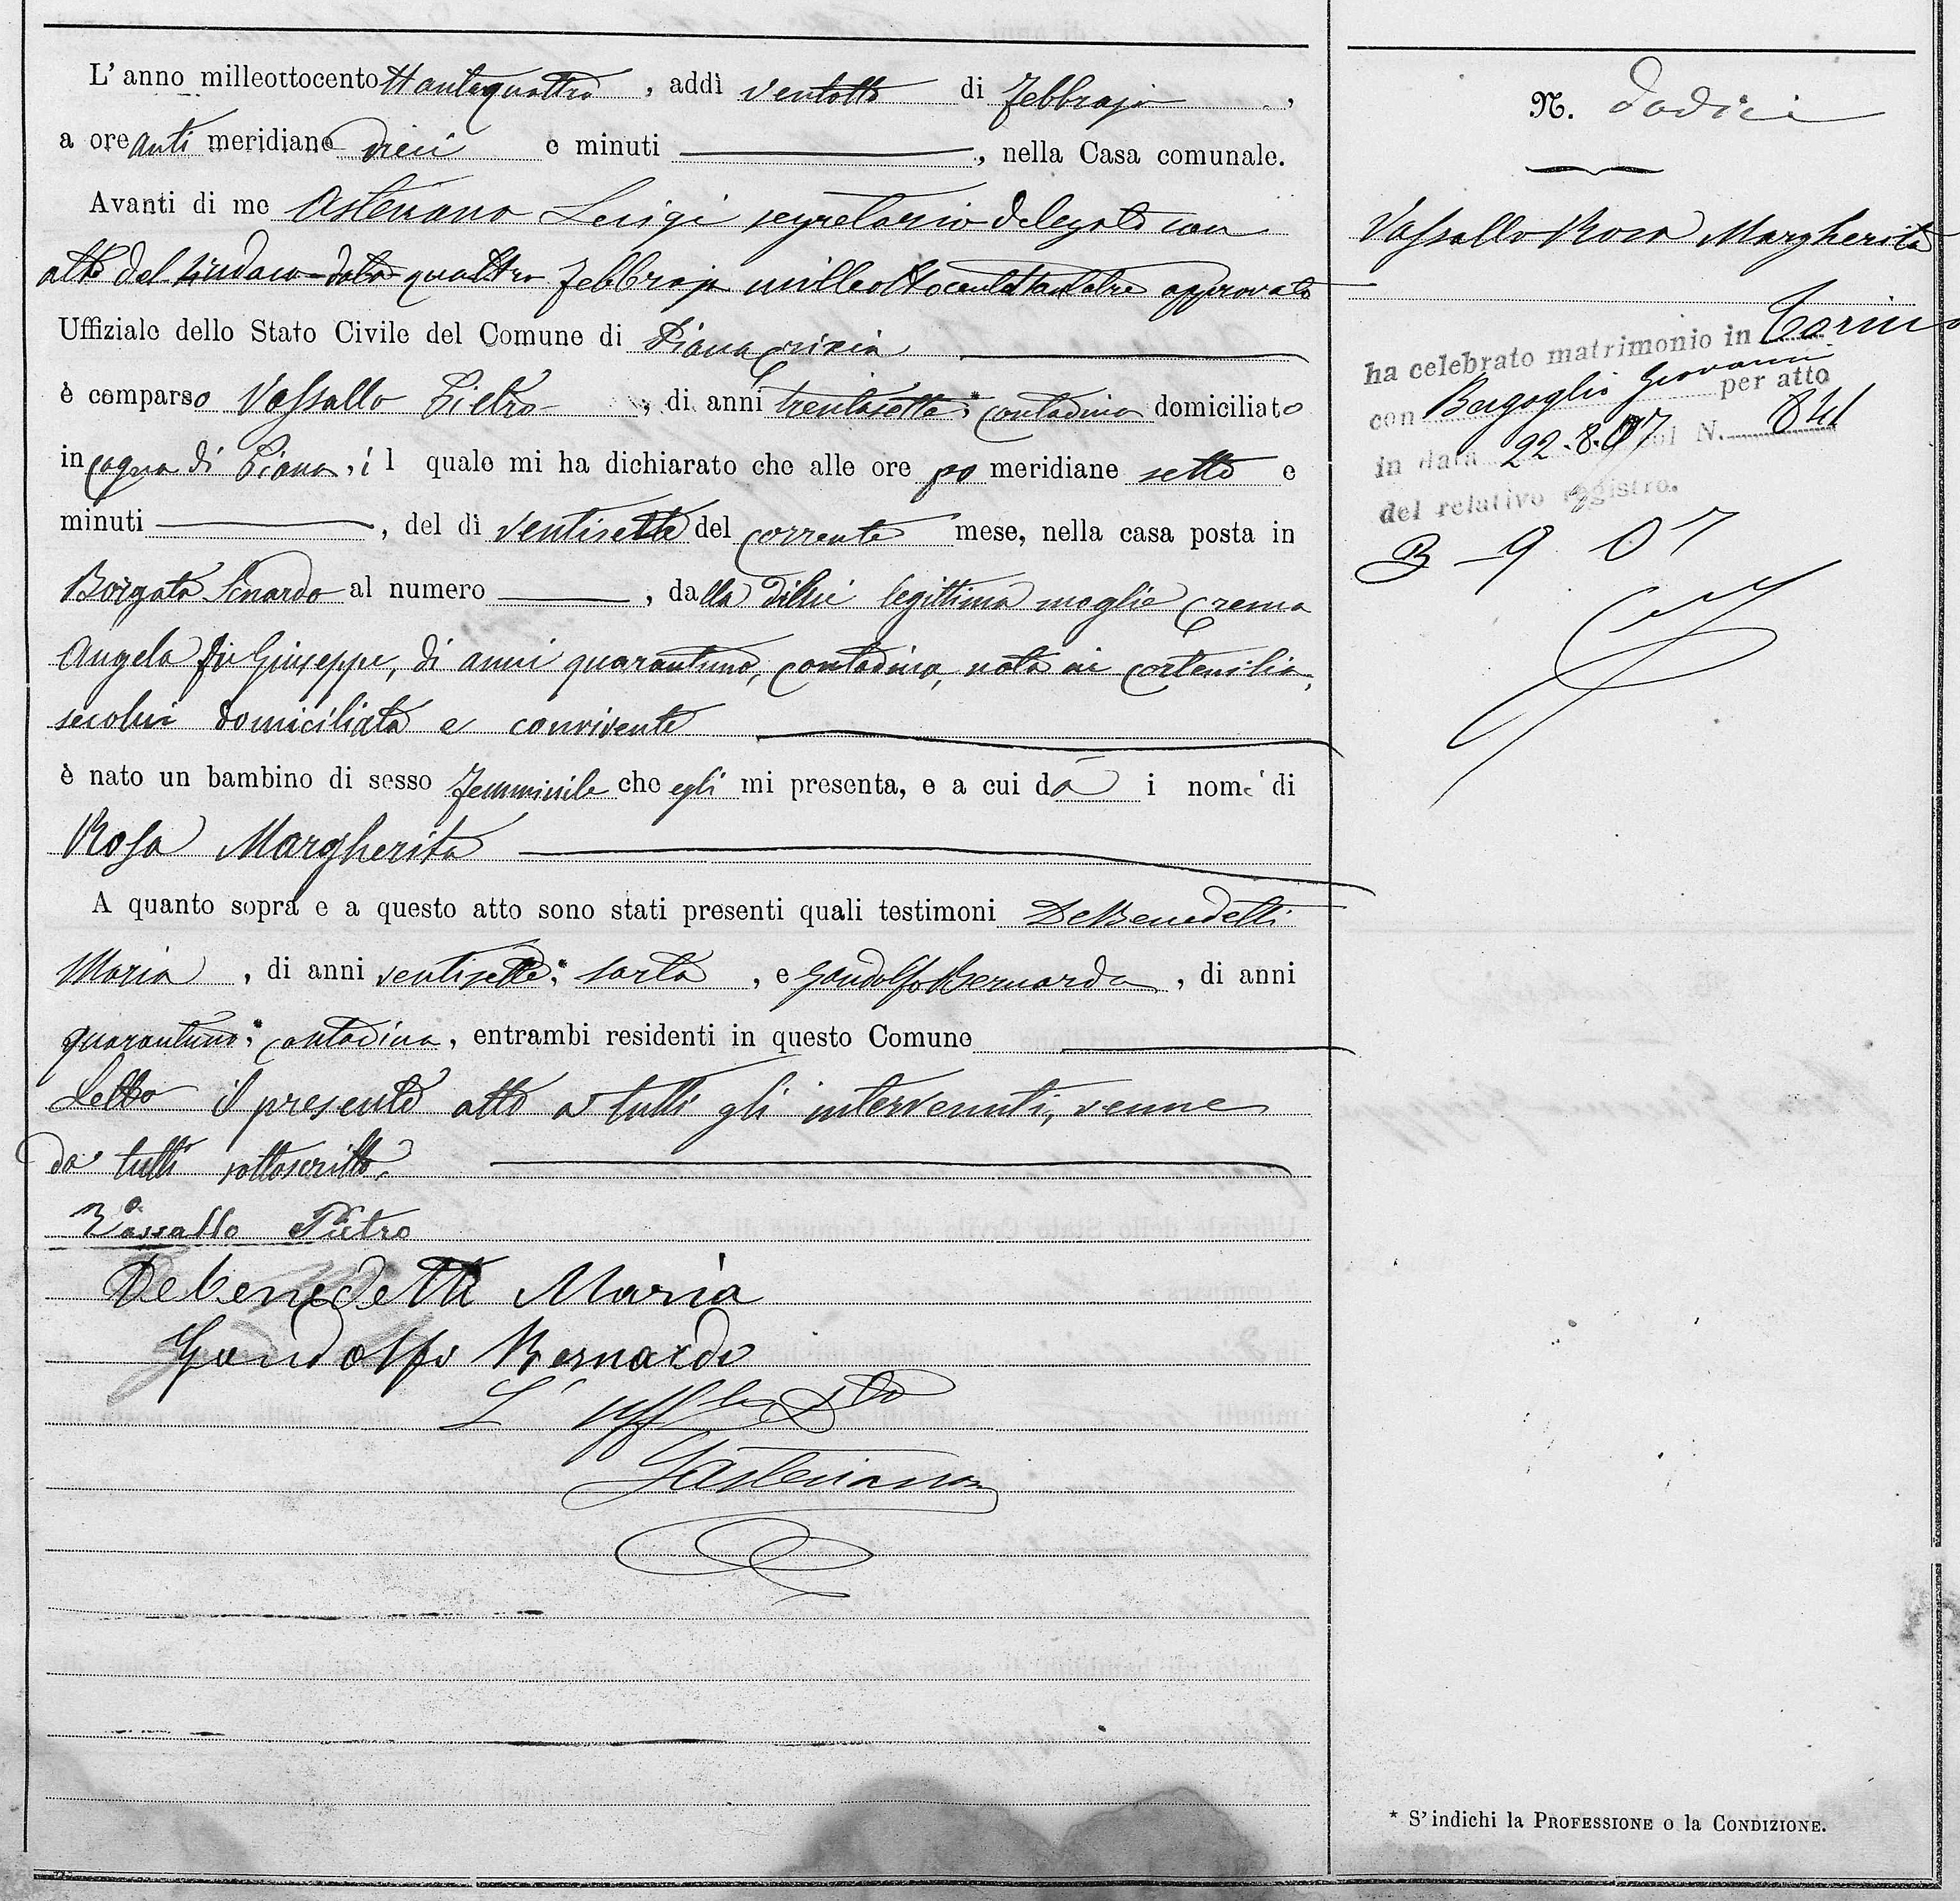 L'anno milleottocento ottantaquattro, addì ventotto di Febbrajo,
a ore anti meridiane dieci e minuti, nella Casa comunale.
Avanti di me Astenano Luigi segretario delegato con
atto del sindaco data quattro Febbrajo milleottocentottantatre approvato
Uffiziale dello Stato Civile del Comune di Piana
è comparso Vassallo Pietro, di anni trentasette;* contadino domiciliato
in Piana, il quale mi ha dichiarato che alle ore po meridiane sette e
minuti, del dì ventisette del corrente mese, nella casa posta in
Borgata al numero, dalla di lui legittima moglie Crema
Angela fu Giuseppe, di anni quarantuno, contadina, nata in Cortemilia,
secolui domiciliata e convivente
è nato un bambino di sesso femminile che egli mi presenta, e a cui dà i nomi di
Rosa Margherita
A quanto sopra e a questo atto sono stati presenti quali testimoni DeBenedetti
Maria, di anni ventisette;* sarta, e Gandolfo Bernardo, di anni
quarantuno;* contadino, entrambi residenti in questo Comune
Letto il presente atto a tutti gli intervenuti, venne
da tutti sottoscritto.
Vassallo Pietro
Debenedetti Maria
Gandolfo Bernardo
L'
Astenano
N. dodici
Vassallo Rosa Margherita
ha celebrato matrimonio in Torino
con Bergoglio Giovanni per atto
in data 22-8-07 al N. 841
del relativo registro.
3-9 07
* S'indichi la PROFESSIONE o la CONDIZIONE.